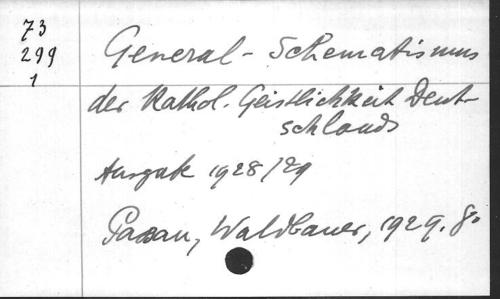 73
299
1
General-Schematismus
der Kathol. Geistlichkeit Deut-
schlands
Ausgabe 1928/29
Passau, Waldbauer, 1929. 8°